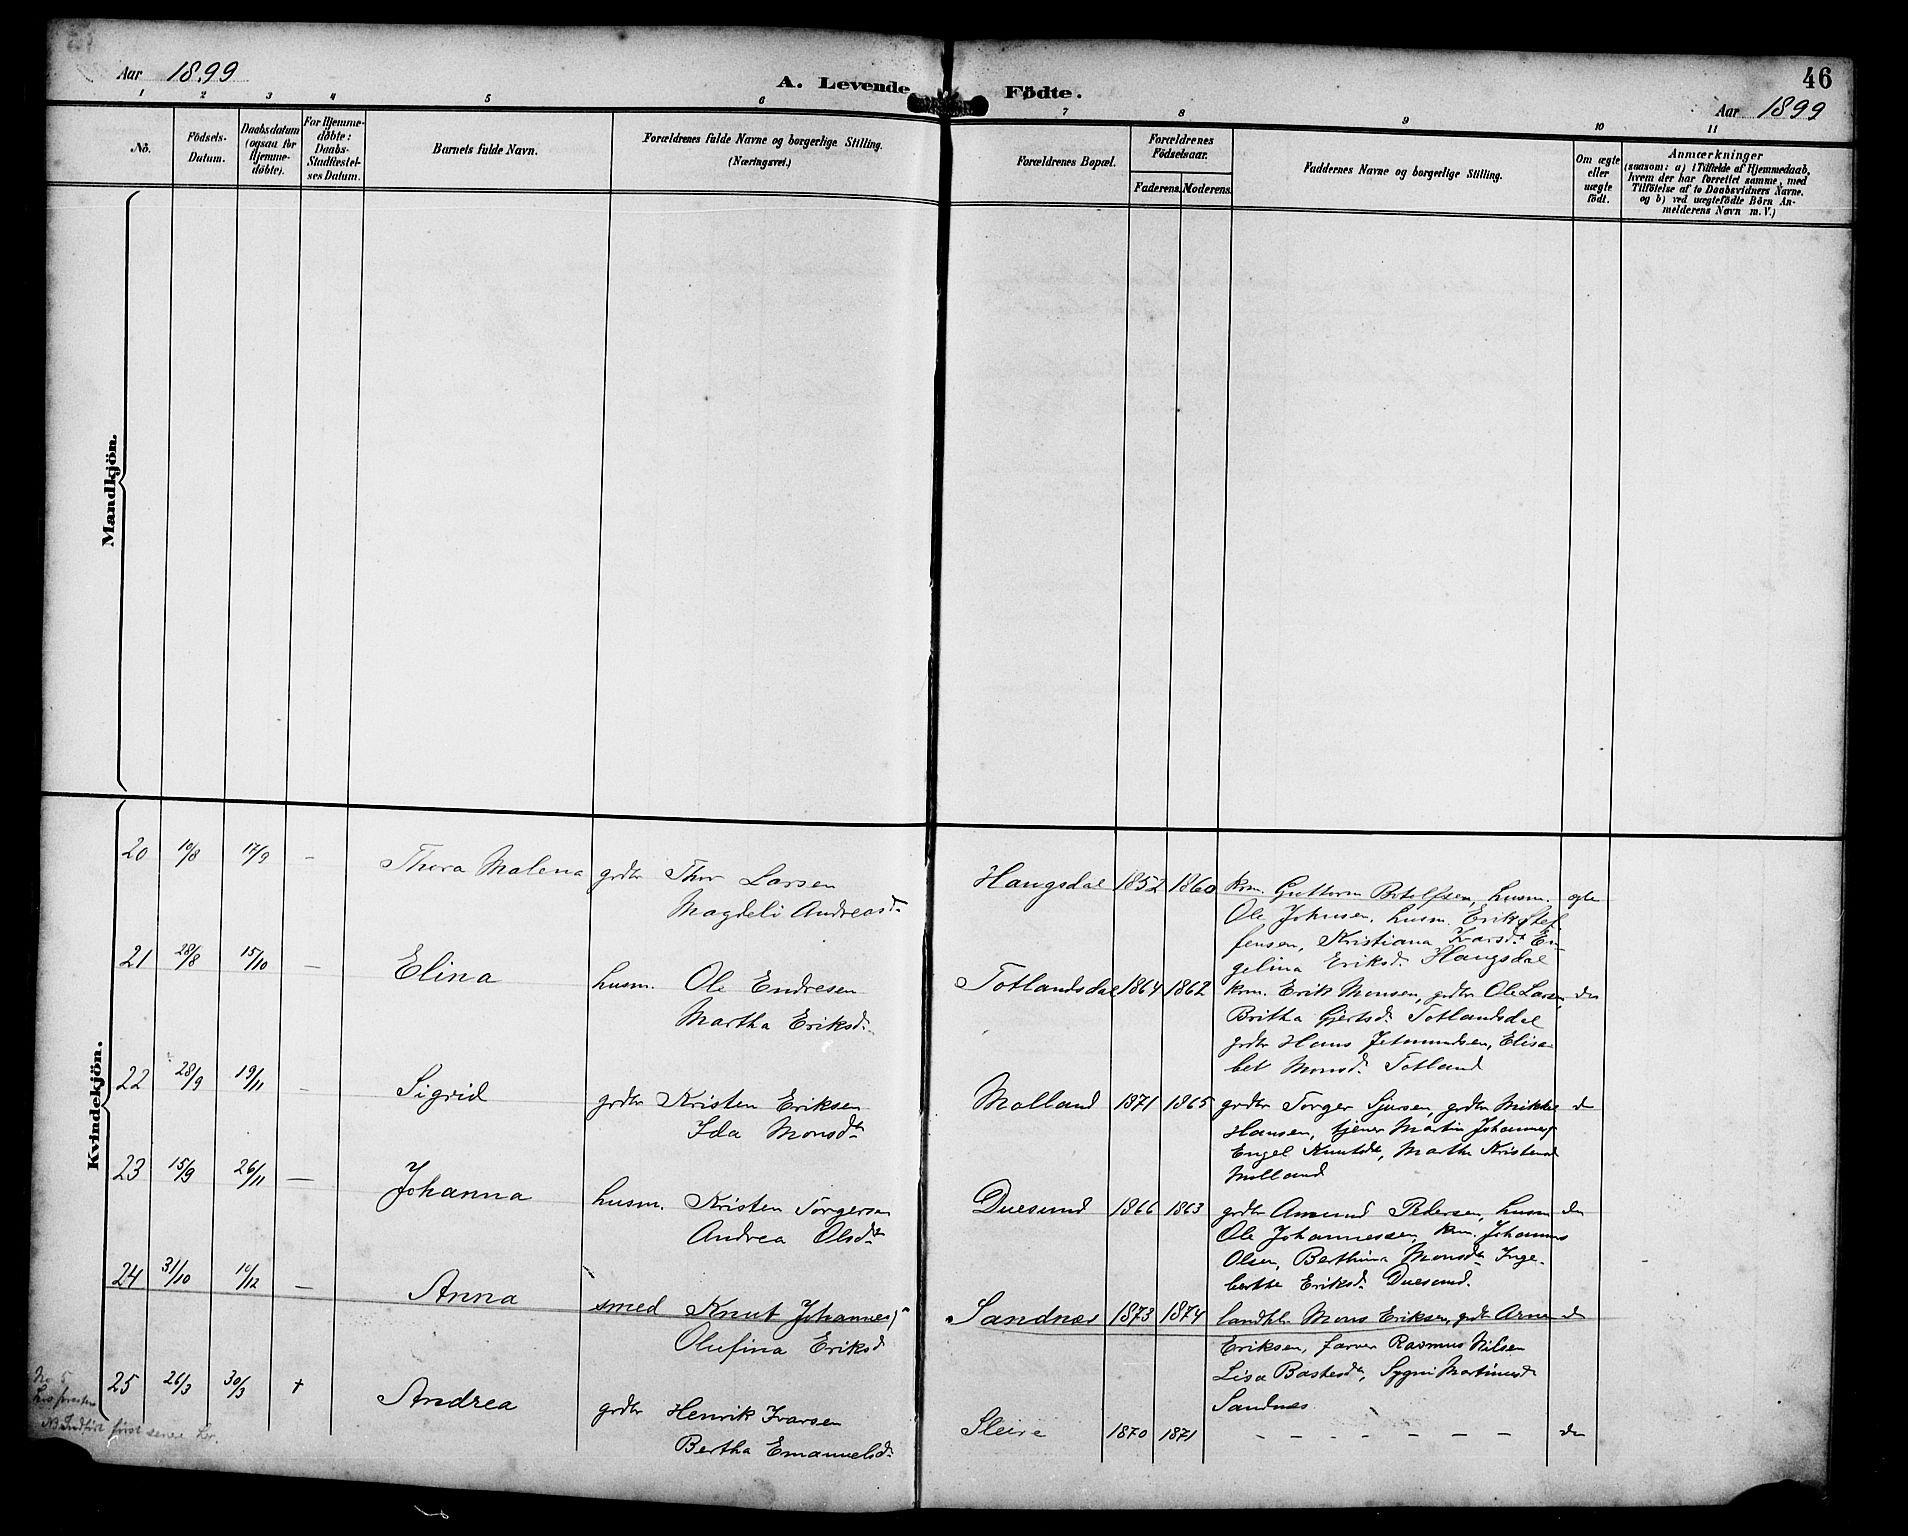 Aar 1899
A. Levende Fødte.
46
Aar 1899
1 2 3 4 5 6 7 8 9 10 11
No.
Födsels-
Datum.
Daabsdatum
(ogsaa for
Hjemme-
døbte).
For Hjemme-
døbte:
Daabs-
Stadfæstel-
ses Datum.
Barnets fulde Navn.
Forældrenes fulde Navne og borgerlige Stilling.
(Næringsvei.)
Forældrenes Bopæl.
Forældrenes
Födselsaar.
Faderens. Moderens.
Faddernes Navne og borgerlige Stilling.
Om ægte
eller
uægte
födt.
Anmærkninger
(saasom: a) i Tilfælde af Hjemmedaab,
hvem der har forrettet samme, med
Tilføielse af to Daabsvidners Navne.
og b) ved uægtefödte Börn An-
melderens Navn m. V.)
Mandkjön.
Kvindekjön.
20 10/8 17/9 – Thora Malena grdbr Thor Larsen
Magdeli Andreasd.
Haugsdal 1852 1860 krm. Guttorm Botolfsen, husm. egte
Ole Johnsen, husm. Erik Stef-
fensen, Kristiana Ivarsd. En-
gelina Eriksd. Haugsdal
21 28/8 15/10 – Elina husm. Ole Endresen
Martha Eriksd.
Totlandsdal 1864 1862 krm. Erik Monsen, grdbr Ole Larsen, do
Britha Gjertsd. Totlandsdal
grdbr Hans Jetmundsen, Elisa-
bet Monsd. Totland
22 28/9 19/11 – Sigrid grdbr Kristen Eriksen
Ida Monsdtr
Molland 1871 1865 grdbr Torger Sjursen, grdbr Mikkel do
Hansen, tjener Martin Johannes
Engel Knutsd., Marthe Kristensd
Molland
23 15/9 26/11 – Johanna husm. Kristen Torgersen
Andrea Olsdtr
Duesund 1866 1863 grdbr Amund Pedersen, husm do
Ole Johannessen, krm. Johannes
Olsen, Berthina Monsdtr Inge-
berthe Eriksd. Duesund.
24 31/10 10/12 – Anna smed Knut Johannes
Olufina Eriksd
Sandnes 1873 1874 landhl. Mons Eriksen, grdbr Arne do
Eriksen, farver Rasmus Nilsen
Lisa Bastesdtr, Sygni Martinusd
Sandnes
25 26/3 30/3 + Andrea grdbr Henrik Ivarsen
Bertha Emanuelsd.
Sleire 1870 1871 – – – – – – – do
No 5
hos presten
NB Indført først senere her.